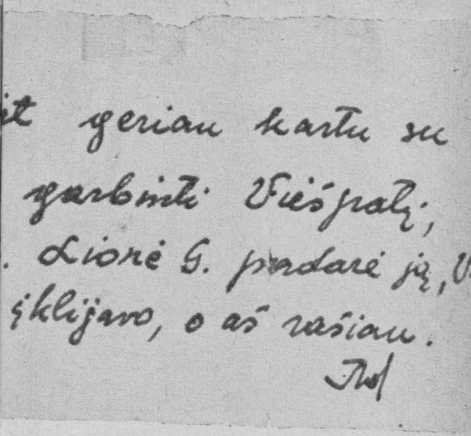 geriau kartu su
garbinti Viešpatį,
. Lionė G. padarė ją, V
įklijavo, o aš rašiau.